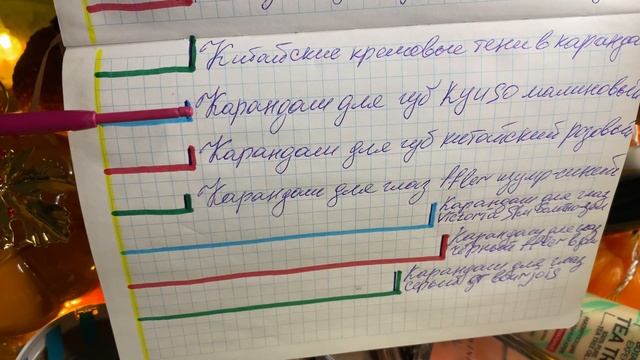 Китайские кремовые тени в каранда
Карандаш для губ Kyuso малиновый
Карандаш для губ китайский розовый
Карандаш для глаз After изумр-синий
Карандаш для глаз
Victoria
Карандаш для глаз
чёрный After
Карандаш для глаз
серый от Bourjois
TEA T